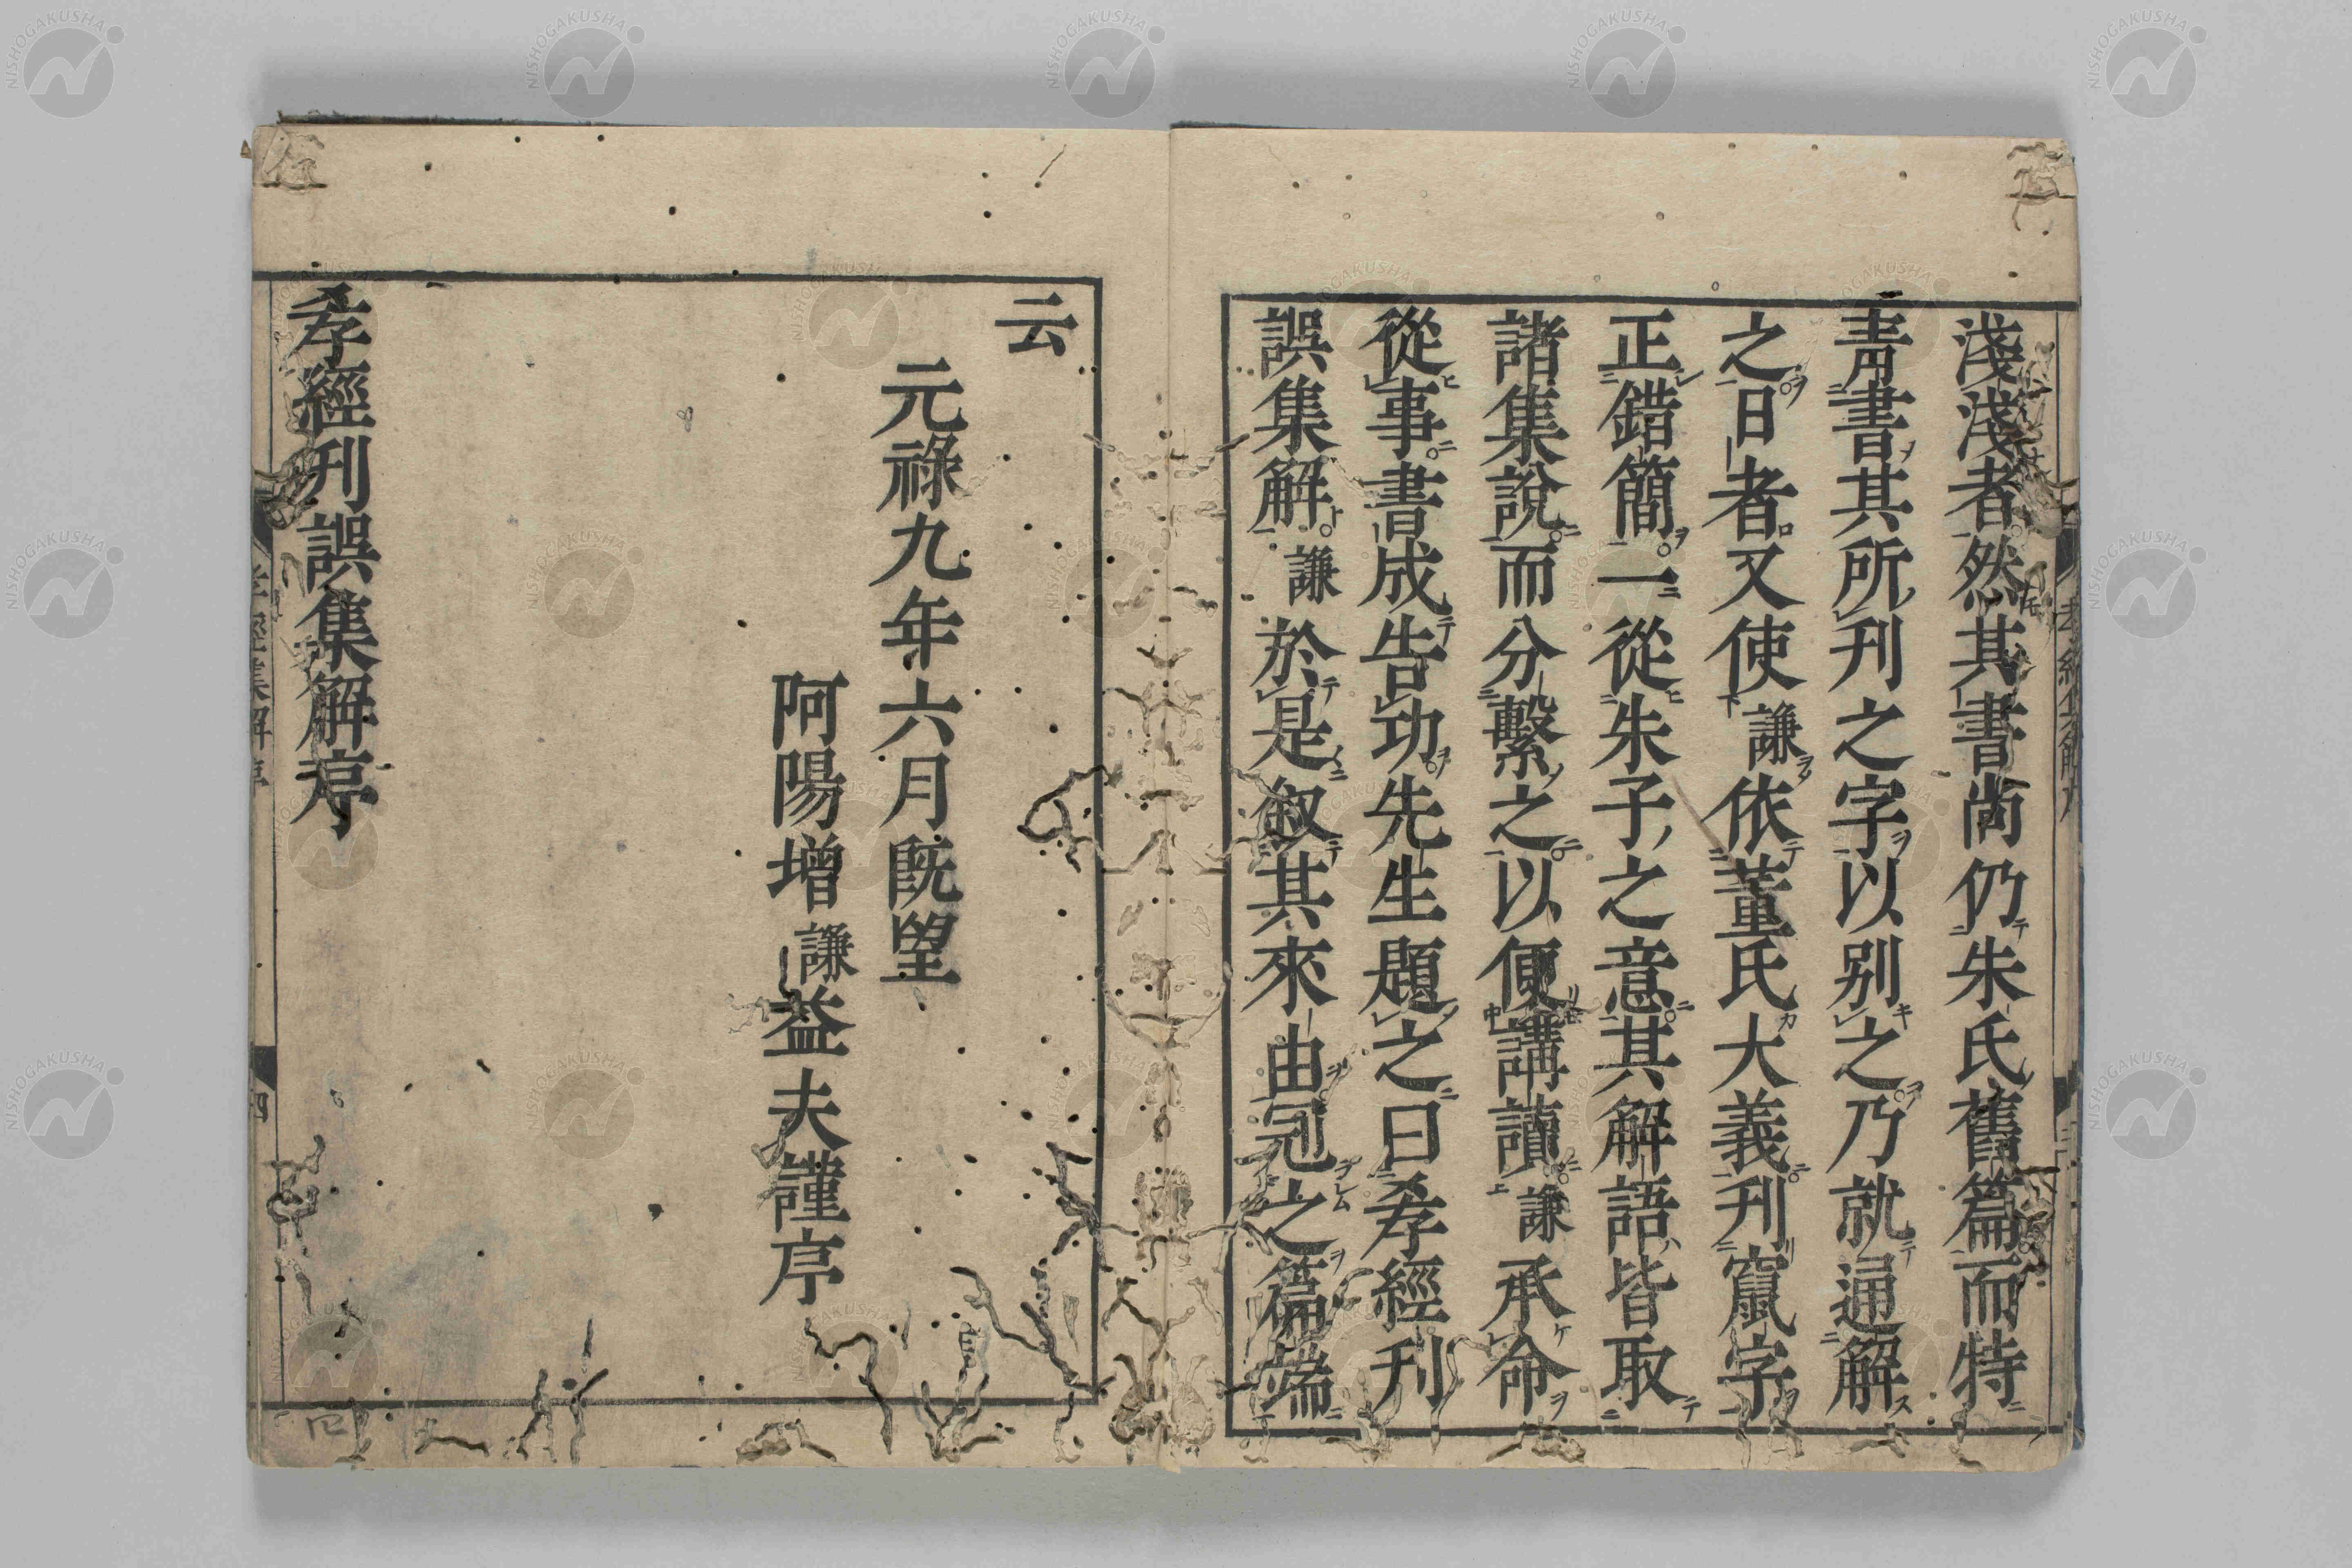 淺淺者然其書尚仍朱氏舊篇而特
靑書其所刊之字以別之乃就通解
之曰者又使謙依董氏大義刊竄字
正錯簡一從朱子之意其解語皆取
諸集說而分繫之以便講讀謙承命
從事書成告功先生題之曰孝經刊
誤集解謙於是叙其來由冠之篇端
云
元祿九年六月既望
阿陽增謙益夫謹序
孝經刊誤集解序